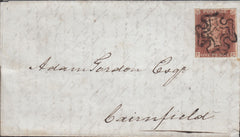 Adam Gordon Esqr
Cairnfield